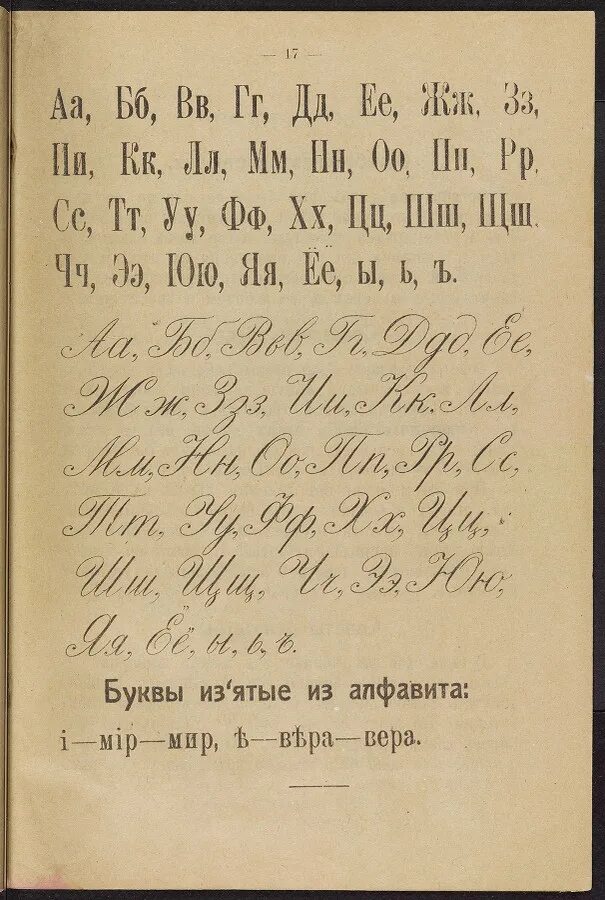 — 17 —
Аа, Бб, Вв, Гг, Дд, Ее, Жж, Зз,
Ии, Кк, Лл, Мм, Нн, Оо, Пп, Рр,
Сс, Тт, Уу, Фф, Хх, Цц, Шш, Щщ.
Чч, Ээ, Юю, Яя, Ёё, ы, ь, ъ.
Аа, Бб, Ввв, Гг, Ддд, Ее,
Жж, Ззз, Ии, Кк, Лл,
Мм, Нн, Оо, Пп, Рр, Сс,
Тт, Уу, Фф, Хх, Цц,
Шш, Щщ, Чч, Ээ, Юю,
Яя, Её, ы, ь, ъ.
Буквы из'ятые из алфавита:
і—мір—мир, ѣ—вѣра—вера.